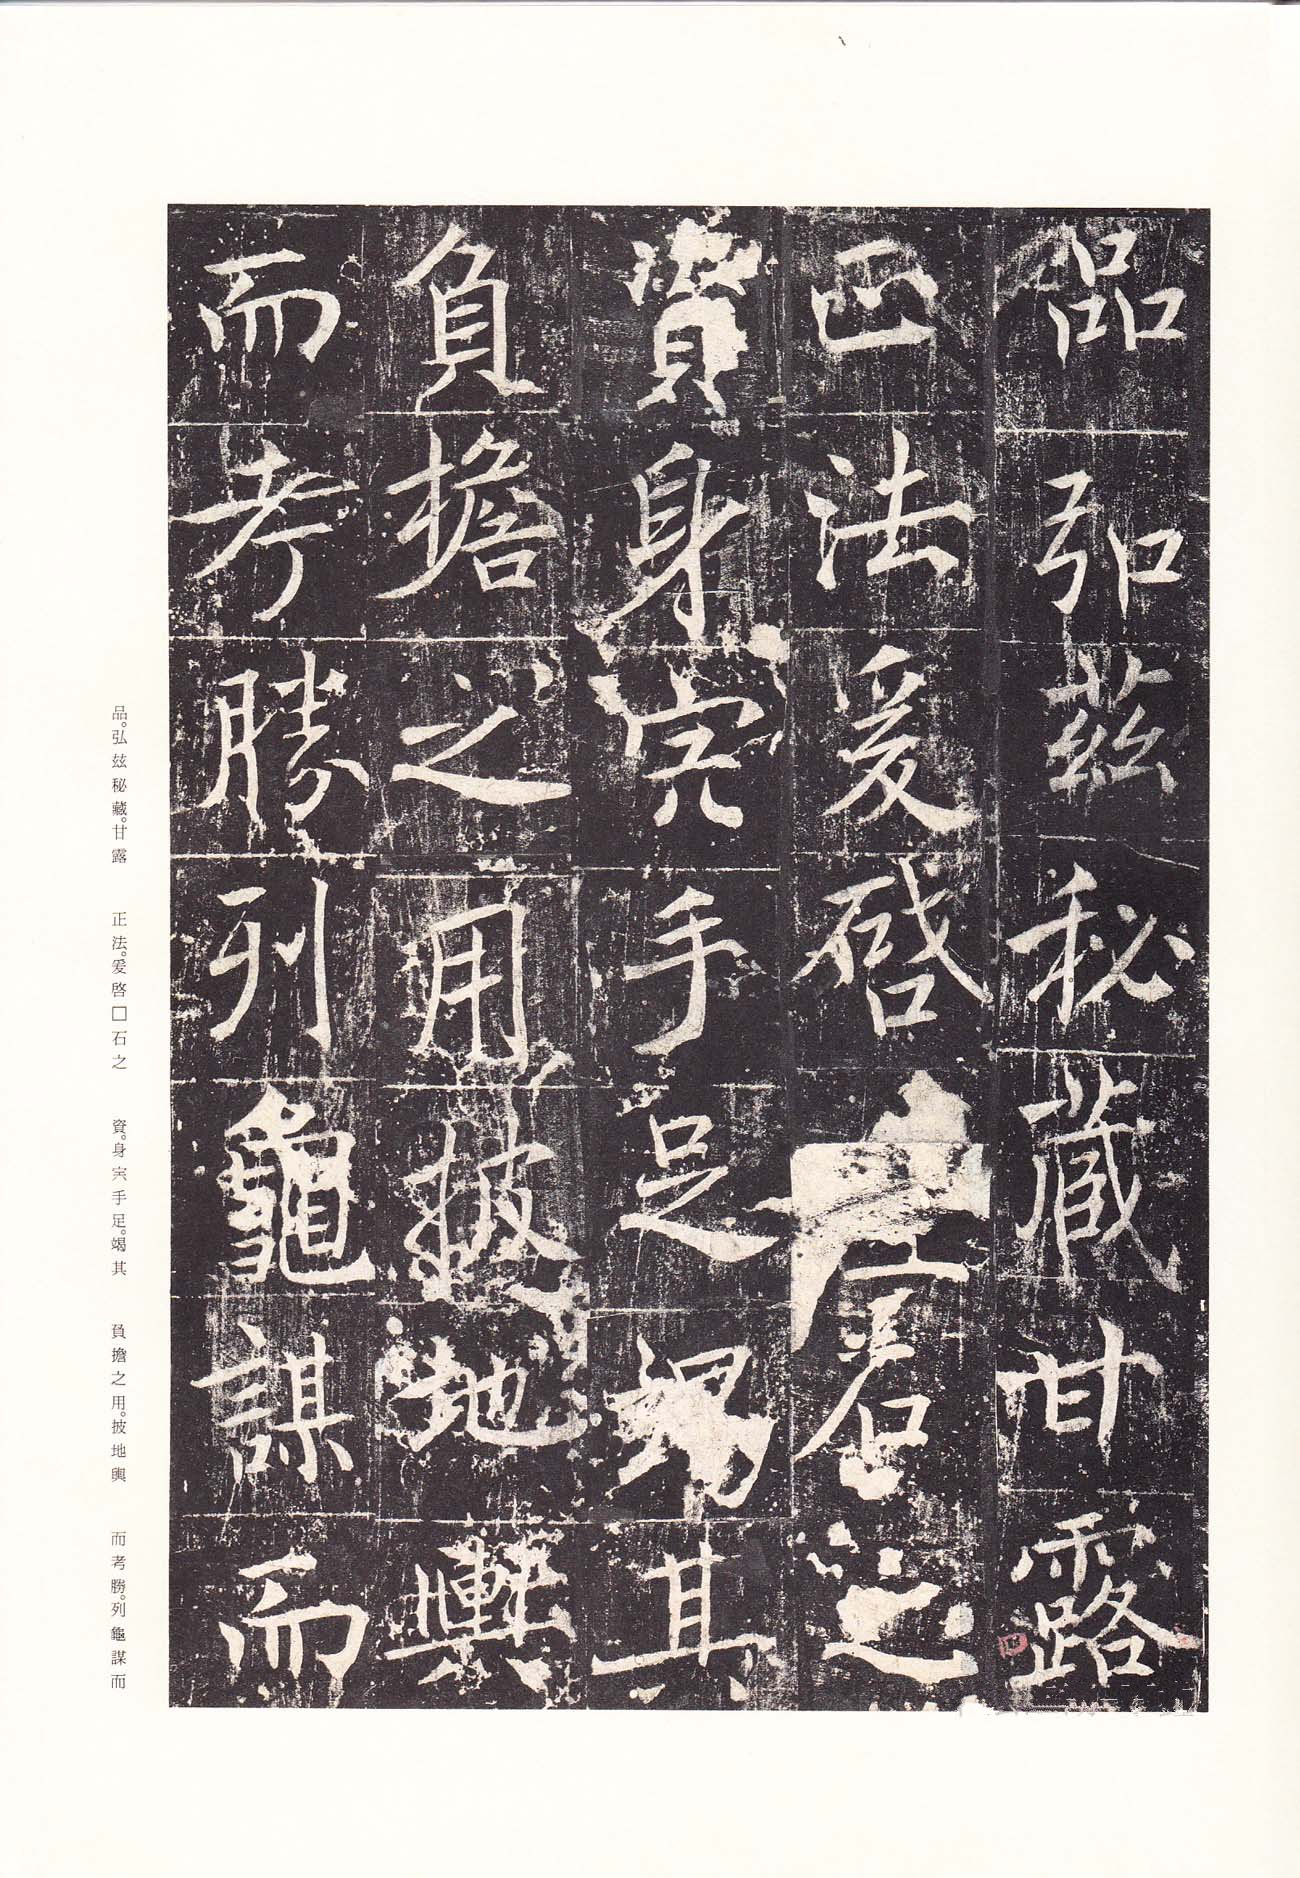 品弘茲秘藏甘露
正法爰啓石之
資身宍手足竭其
負擔之用披地輿
而考勝列龜謀而
品。弘茲秘藏。甘露　正法。爰啓□石之　資。身宍手足。竭其　負擔之用。披地輿　而考勝。列龜謀而